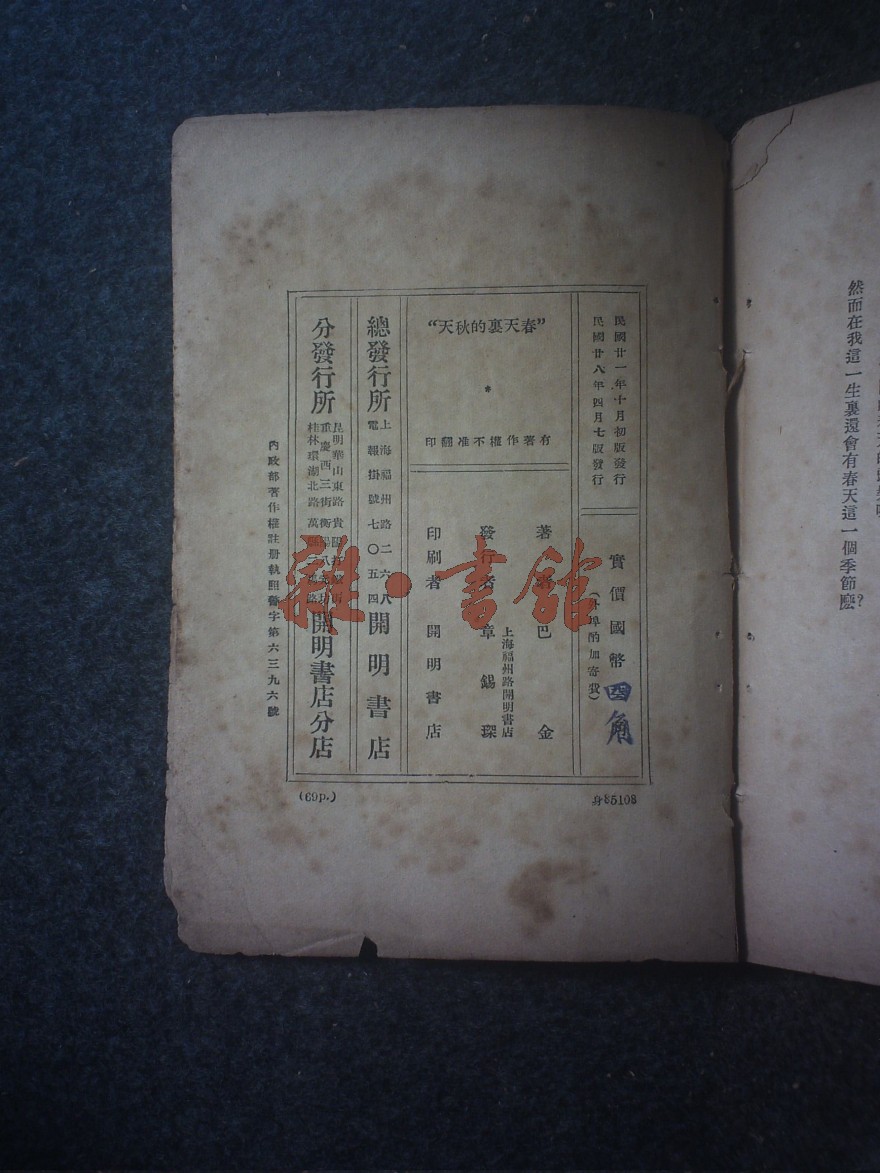 然而在我這一生裏還會有春天這一個季節麽？
民國廿一年十月初版發行
民國廿八年四月七版發行
實價國幣四角
(外埠酌加寄費)
“春天裏的秋天”
*
有著作權不准翻印
著者 巴金
發行者 章錫琛
上海福州路開明書店
印刷者 開明書店
總發行所
上海福州路二六八
電報掛號七〇五四
開明書店
分發行所
昆明華山東路
重慶西三街
桂林環湖北路
開明書店分店
內政部著作權註册執照警字第六三九六號
(69p.)
5108
雜·書館